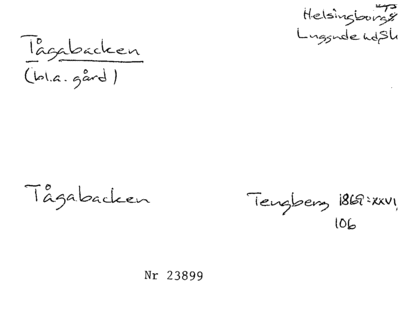 Tågabacken
(bl.a. gård)
Helsingborgs
Luggude hd, Sk
Tågabacken
Tengberg 1869:XXVI
106
Nr 23899